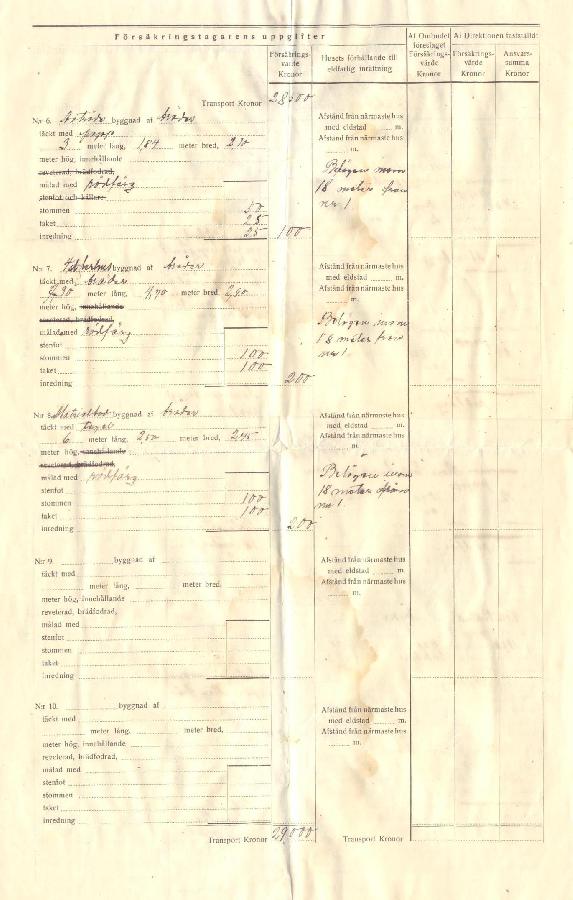 Försäkringstagarens uppgifter
Försäkrings-
värde
Kronor
Husets förhållande till
eldfarlig inrättning
Af Ombudet
föreslaget
Försäkrings-
värde
Kronor
Af Direktionen fastställdt:
Försäkrings-
värde
Kronor
Ansvars-
summa
Kronor
Transport Kronor 28500
N:r 6. byggnad af bräder
täckt med papp
3 meter lång, 1,84 meter bred, 2,10
meter hög, innehållande
reveterad, brädfodrad,
målad med rödfärg
stenfot och källare
stommen 50
taket 25
inredning 25 100
Afstånd från närmaste hus
med eldstad m.
Afstånd från närmaste hus
m.
Belägen inom
18 meter från
nr 1
N:r 7. byggnad af bräder
täckt med bräder
meter lång, meter bred, 2,50
meter hög, innehållande
reveterad, brädfodrad,
målad med rödfärg
stenfot
stommen 100
taket 100
inredning 200
Afstånd från närmaste hus
med eldstad m.
Afstånd från närmaste hus
m.
Belägen inom
18 meter från
nr 1.
N:r 8. byggnad af bräder
täckt med tegel
6 meter lång, 2,50 meter bred, 2,45
meter hög, innehållande
reveterad, brädfodrad,
målad med rödfärg
stenfot
stommen 100
taket 100
inredning 200
Afstånd från närmaste hus
med eldstad m.
Afstånd från närmaste hus
m.
Belägen inom
18 meter från
nr 1.
N:r 9. byggnad af
täckt med
meter lång, meter bred,
meter hög, innehållande
reveterad, brädfodrad,
målad med
stenfot
stommen
taket
inredning
Afstånd från närmaste hus
med eldstad m.
Afstånd från närmaste hus
m.
N:r 10. byggnad af
täckt med
meter lång, meter bred,
meter hög, innehållande
reveterad, brädfodrad,
målad med
stenfot
stommen
taket
inredning
Afstånd från närmaste hus
med eldstad m.
Afstånd från närmaste hus
m.
Transport Kronor 29000
Transport Kronor